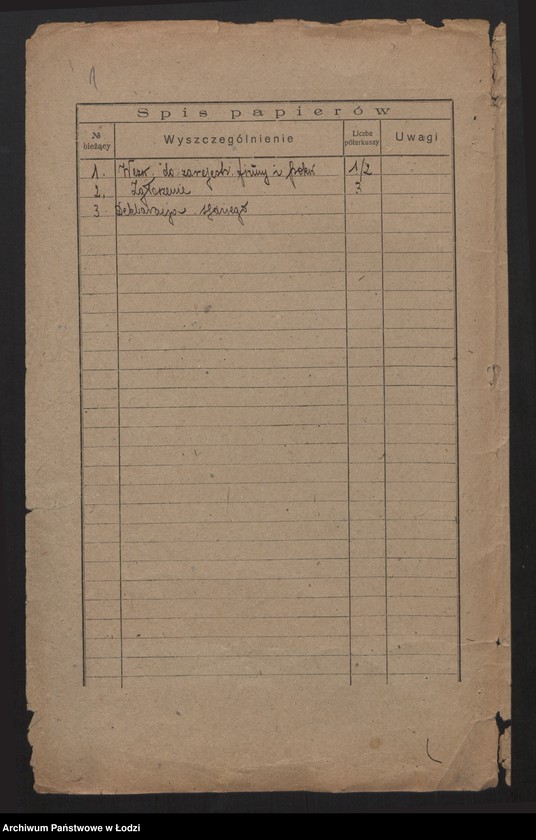 Spis papierów
№ bieżący Wyszczególnienie Liczba półarkuszy Uwagi
1. Wezw. do zarejestr. firmy i 1/2
2. Zgłoszenie 3
3. Deklaracja
Archiwum Państwowe w Łodzi